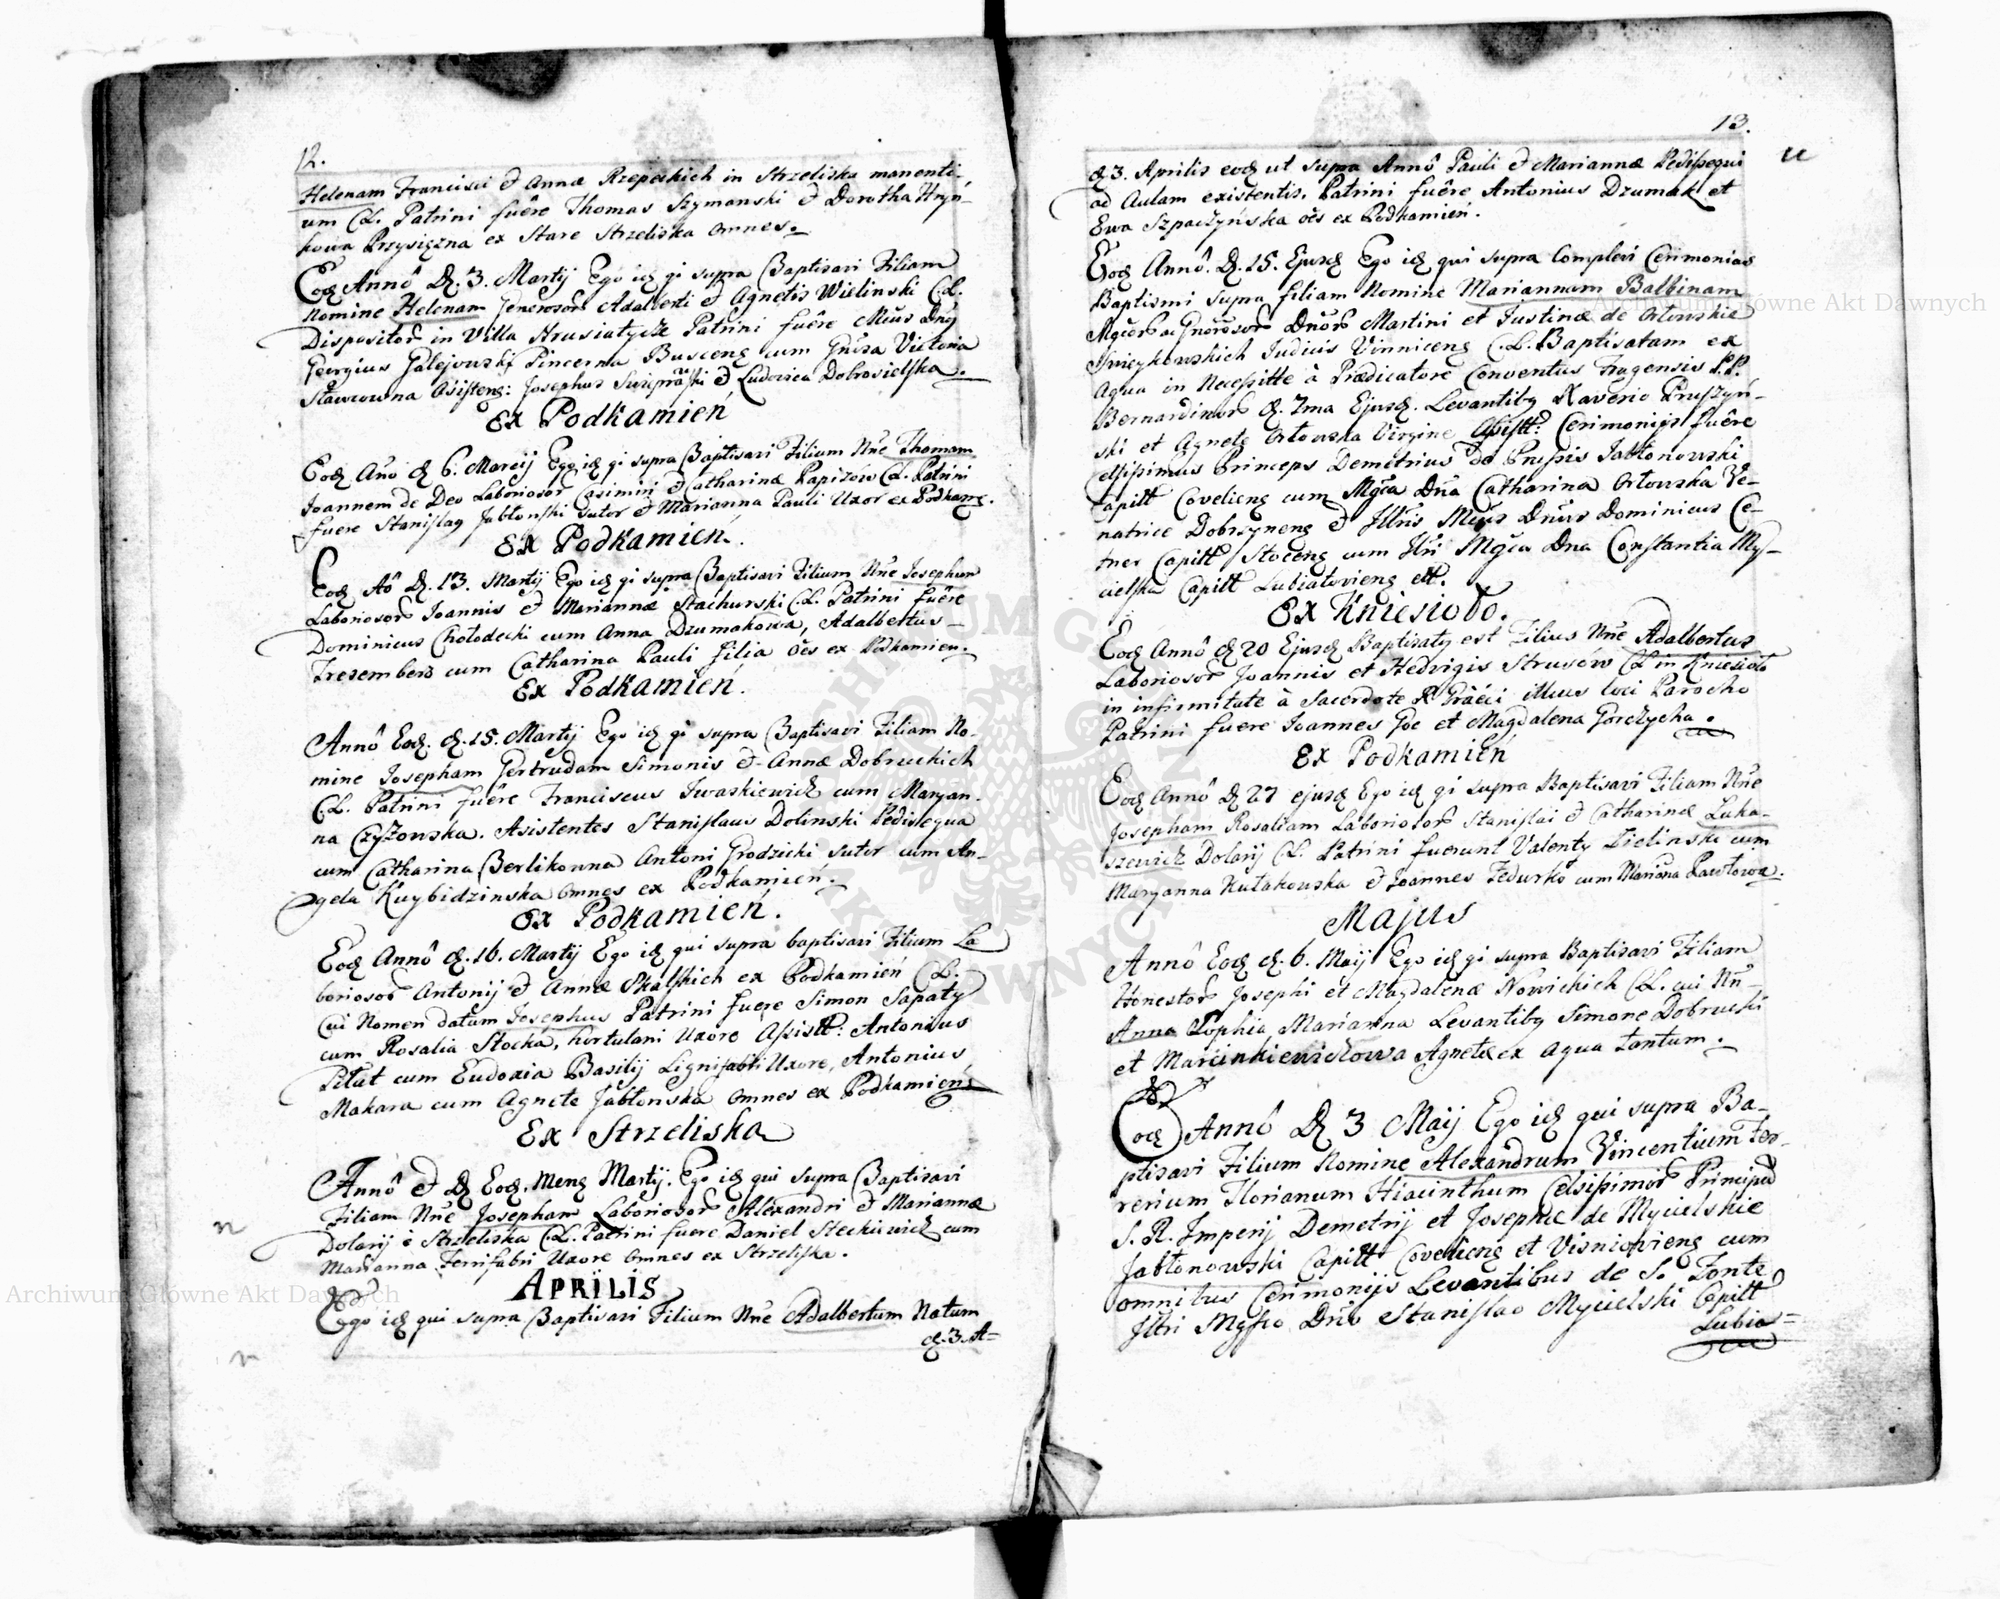 12.
Helenam Francisci & Annæ Rzepeckich in Strzeliska manenti-
um C.L. Patrini fuêre Thomas Szymanski & Dorotha Hryń-
kowa Przysiężna ex Stare Strzeliska omnes.
Eod Annô D. 3. Martij Ego id qi supra Baptisavi Filiam
Nomine Helenam Generosor Adalberti & Agnetis Wielinski C.L.
Dispositor in Villa Hrusiatycze Patrini fuêre Mcus Dnus
Georgius Galejowski Pincerna Busceng cum Gnisa Victoria
Asisteng: Josephus & Ludovica Dobrosielska.
Ex Podkamień
Eod Año d 6. Martij Ego id qi supra Baptisavi Filium Nñe Thomam
Joannem de Deo Laboriosor Casimiri & Catharinæ Rapizów C.L. Patrini
fuere Stanislag Jabłonski Sutor & Marianna Pauli Uxor ex Podkamg.
Ex Podkamień.
Eod Aô D. 13. Martij Ego id qi supra Baptisavi Filium Nñe Josephum
Laboriosor Joannis & Mariannæ Stachurski C.L. Patrini fuêre
Dominicus Chołodecki cum Anna Dzumakowa, Adalbertus
cum Catharina Pauli filia oẽs ex Podkamien.
Ex Podkamień.
Annô Eod. d. 15. Martij Ego id qi supra Baptisavi Filiam No-
mine Josepham Gertrudam Simonis & Annæ Dobruckich
C.L. Patrini fuêre Franciscus Iwaskiewicz cum Maryan-
na Czyżowska. Asistentes Stanislaus Dolinski Pedisequa
cum Catharina Berlikowna Antoni Grodzicki sutor cum An-
gela Kuybidzinska omnes ex Podkamien.
Ex Podkamień.
Eod Annô d. 16. Martij Ego id qui supra baptisavi Filium La
boriosor Antonij & Annæ Skalskich ex Podkamień C.L.
Cui Nomen datum Josephus Patrini fuere Simon Sapaty
cum Rosalia Stocka, hortulani Uxore Assistt: Antonius
Pitat cum Eudoxia Basilij Lignifabri Uxore, Antonius
Makara cum Agnete Jabłonska omnes ex Podkamień
Ex Strzeliska
Annô & D Eod. Meng Martij. Ego id qui supra Baptisavi
Filiam Nñe Josepham Laboriosor Alexandri & Mariannæ
Dolarij è Strzeliska C.L. Patrini fuere Daniel Steckiewicz cum
Marianna Ferrifabri Uxore omnes ex Strzeliska.
APRILIS
Ego id qui supra Baptisavi Filium Nñe Adalbertum Natum
d. 3. A=
13.
d 3. Aprilis eod ut supra Annô Pauli & Mariannæ Pedissequi
ad Aulam existentis. Patrini fuêre Antonius Dzumak et
Ewa Szpaczyńska oẽs ex Podkamień.
Eod Annô. D. 15. Ejusd Ego id qui supra Complevi Cerimonias
Baptismi supra filiam Nomine Mariannam Balbinam
Mgcorb ac Gnerosor Dnorb Martini et Justinæ de Orłowskie
Judicis Vinniceng C.L. Baptisatam ex
Aqua in Necessitte à Prædicatore Conventus Fragensis P.P.
Bernardinor d. 7ma Ejusd. Levantibg Xaverio Pruszyń-
ski et Agnete Orłowska Virgine Assistt: Cerimonijs fuêre
Celsissimus Princeps Demetrius de Prussis Jabłonowski
Capitt Covelieng cum Mgca Dña Catharina Orłowska Ve-
natrice Dobrzyneng & Illris Mcus Dnus Dominicus Ce-
tner Capitt Stoceng cum Illri Mgca Dna Constantia My-
cielska Capitt Lubiatovieng ett.
Ex Kniesioło.
Eod Annô d 20 Ejusd Baptisatg est Filius Nñe Adalbertus
Laboriosor Joannis et Hedvigis Strusów C.L. in Kniesioło
in infirmitate à Sacerdote R Græci illius loci Parocho
Patrini fuere Joannes Goc et Magdalena Gorczycha.
Ex Podkamień
Eod Annô D 27 ejusd Ego id qi supra Baptisavi Filiam Nñe
Josepham Rosaliam Laboriosor Stanislai & Catharinæ Łuka-
szewicz Dolarij C.L. Patrini fuerunt Valenty Zielinski cum
Maryanna Kułakowska & Joannes Fedurko cum Mariana Pawłowa.
Majus
Annô Eod d. 6. Maij Ego id qi supra Baptisavi Filiam
Honestor Josephi et Magdalenæ Nowickich C.L. cui Nñ
Anna Sophia Marianna Levantibg Simone Dobrucki
et Marcinkiewiczowa Agnete ex Aqua tantum.
Eod Annô D 3 Maij Ego id qui supra Ba-
ptisavi Filium Nomine Alexandrum Vincentium Fer-
rerium Florianum Hiacinthum Celsissimor Principum
S. R. Imperij Demetrij et Josephæ de Mycielskie
Jabłonowski Capitt Covelieng et Visniovieng cum
omnibus Cerimonijs Levantibus de S. Fonte
Illri Mgfco Dño Stanislao Mycielski Capitt
Lubia=